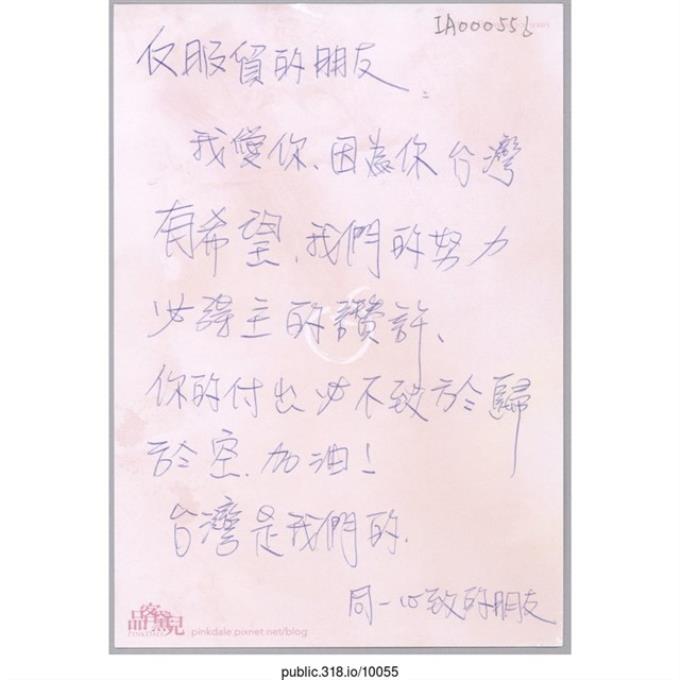 IA000556
反服貿的朋友：
我愛你、因為你台灣
有希望、我們的努力
必得主的讚許、
你的付出必不致於歸
於空、加油！
台灣是我們的.
同一心致的朋友
品客黛兒
PINKDALE
pinkdale.pixnet.net/blog
public.318.io/10055